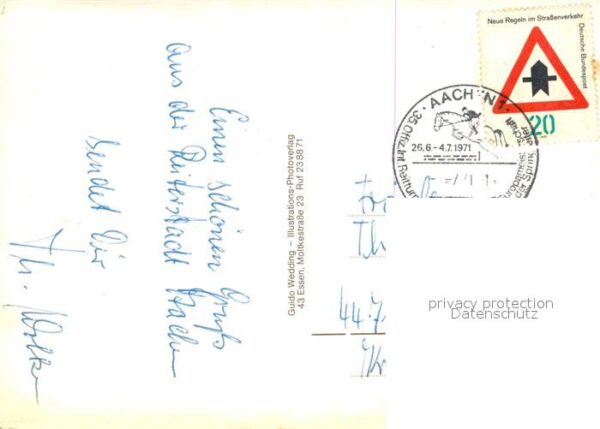 Neue Regeln im Straßenverkehr
Deutsche Bundespost
20
· AACHEN 1 ·
35. Offiz. Int. Reitturn
26.6.-4.7.1971
Europameis
der Spring
Einen schönen Gruß
aus der Reiterstadt Aachen
sendet Dir
Guido Wedding – Illustrations-Photoverlag
43 Essen, Moltkestraße 23 Ruf 23 88 71
44
privacy protection
Datenschutz